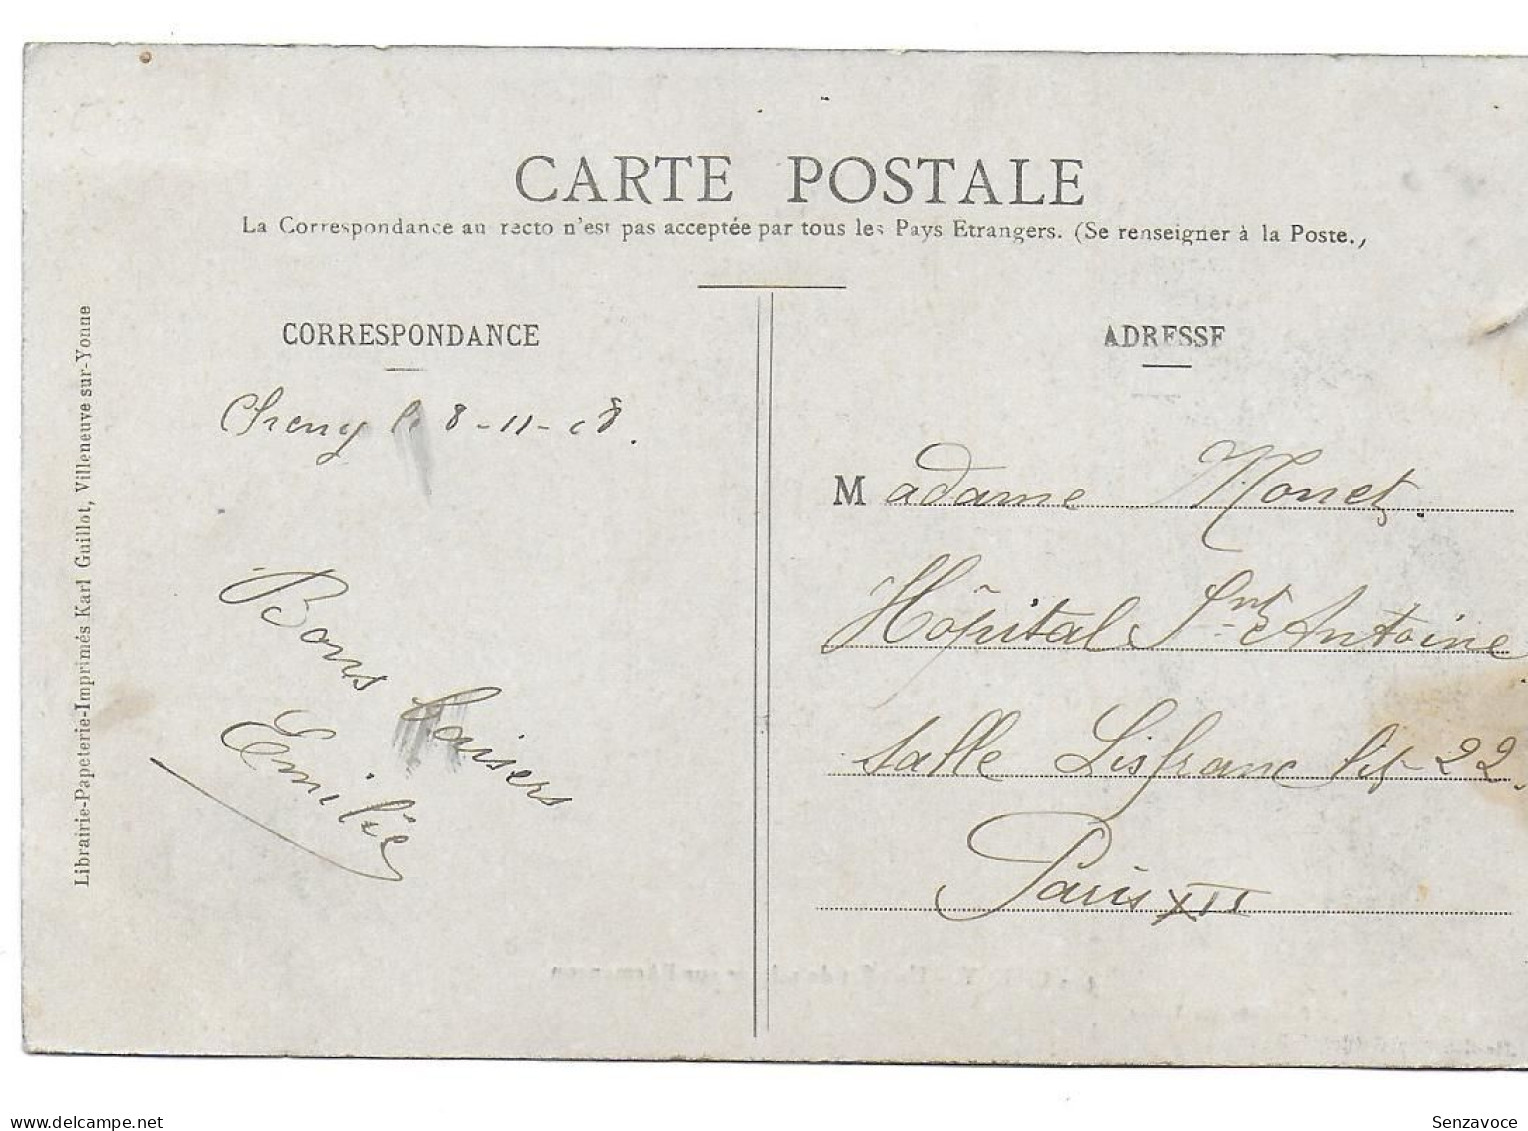 CARTE POSTALE
La Correspondance au recto n'est pas acceptée par tous les Pays Etrangers. (Se renseigner à la Poste.,
CORRESPONDANCE
Cheny le 8-11-08.
Bons baisers
Emilie
Librairie-Papeterie-Imprimés Karl Guillot, Villeneuve sur-Yonne
ADRESSE
Madame Monet.
Hôpital Snt Antoine
salle Lisfranc lit 22.
Paris XII
Senzavoce